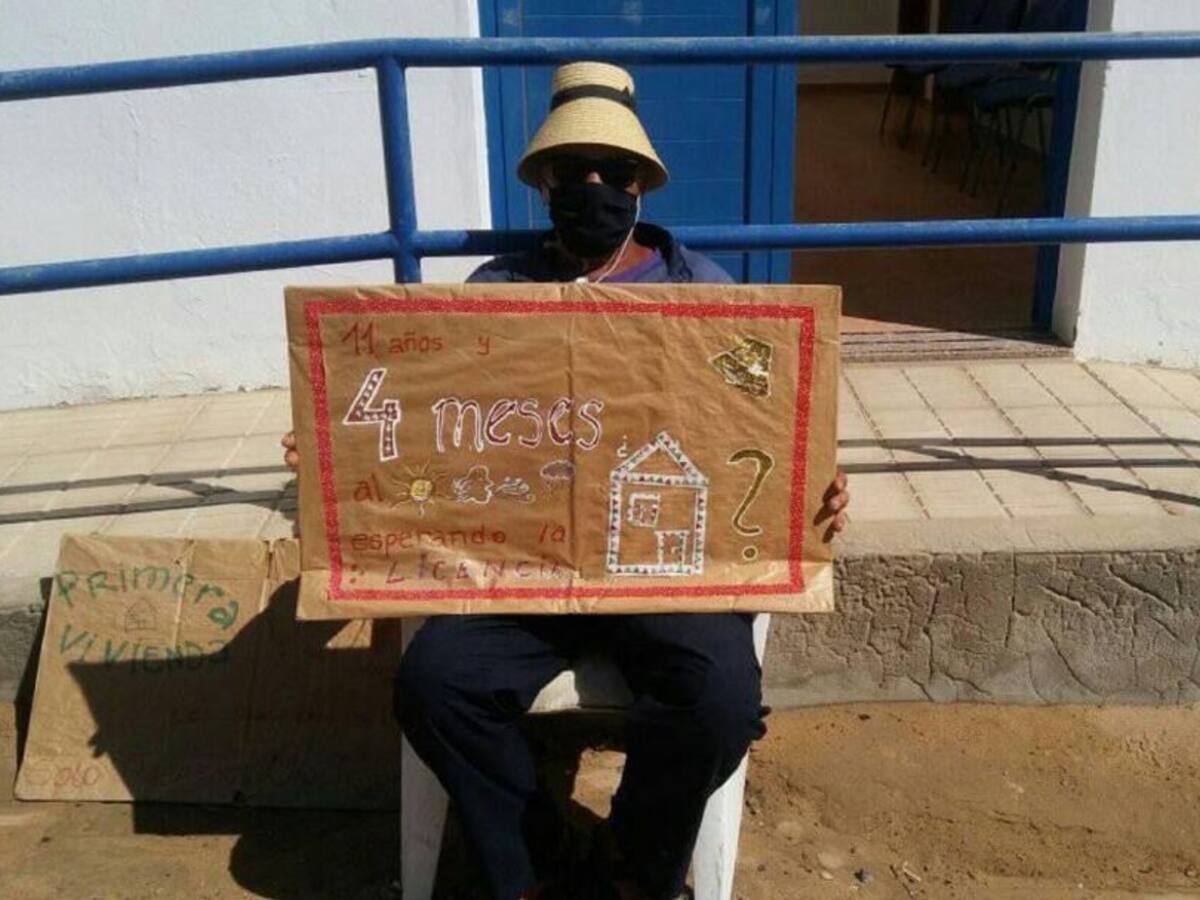 11 años y
4 meses
al
esperando la
LICENCIA
¿ ?
Primera
VIVIENDA
Solo